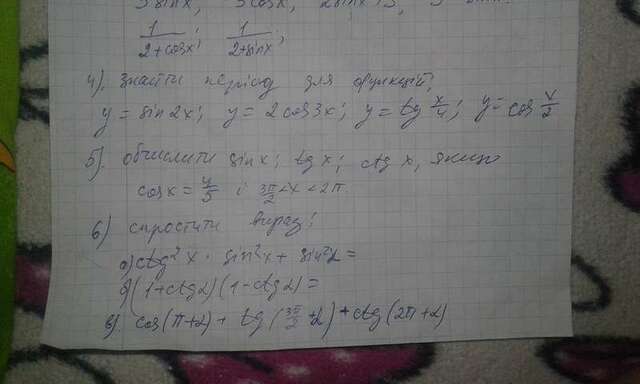 3 sinx; 3cosx;
1/(2+cosx); 1/(2+sinx);
4). знайти період для функцій;
y = sin2x; y = 2cos3x; y = tg x/4; y = cos x/2
5). обчислити sinx; tgx; ctgx, якщо
cosx = 4/5 i 3π/2 < x < 2π.
6) спростити вираз:
а) ctg²x · sin²x + sin²α =
б) (1+ctgα)(1-ctgα) =
в) cos(π+α) + tg(3π/2+α) + ctg(2π+α)